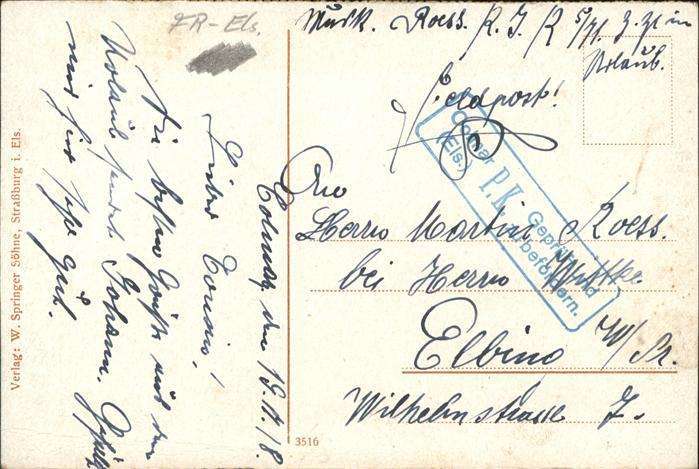 FR-Els.
Musk. Roess. R. I. R 5/71. z. Zt in
Urlaub.
Feldpost!
Colmar
(Els.)
P.K.
Geprüft und
zu befördern.
An
Herrn Martin Roess.
bei Herrn
Elbing W/Pr.
Wilhelmstrasse 7.
Colmar, den 19.11.18.
Lieber Cousin!
Die besten Grüße aus dem
Urlaub sendet Johann.
mir geht
gut.
Verlag: W. Springer Söhne, Straßburg i. Els.
3516